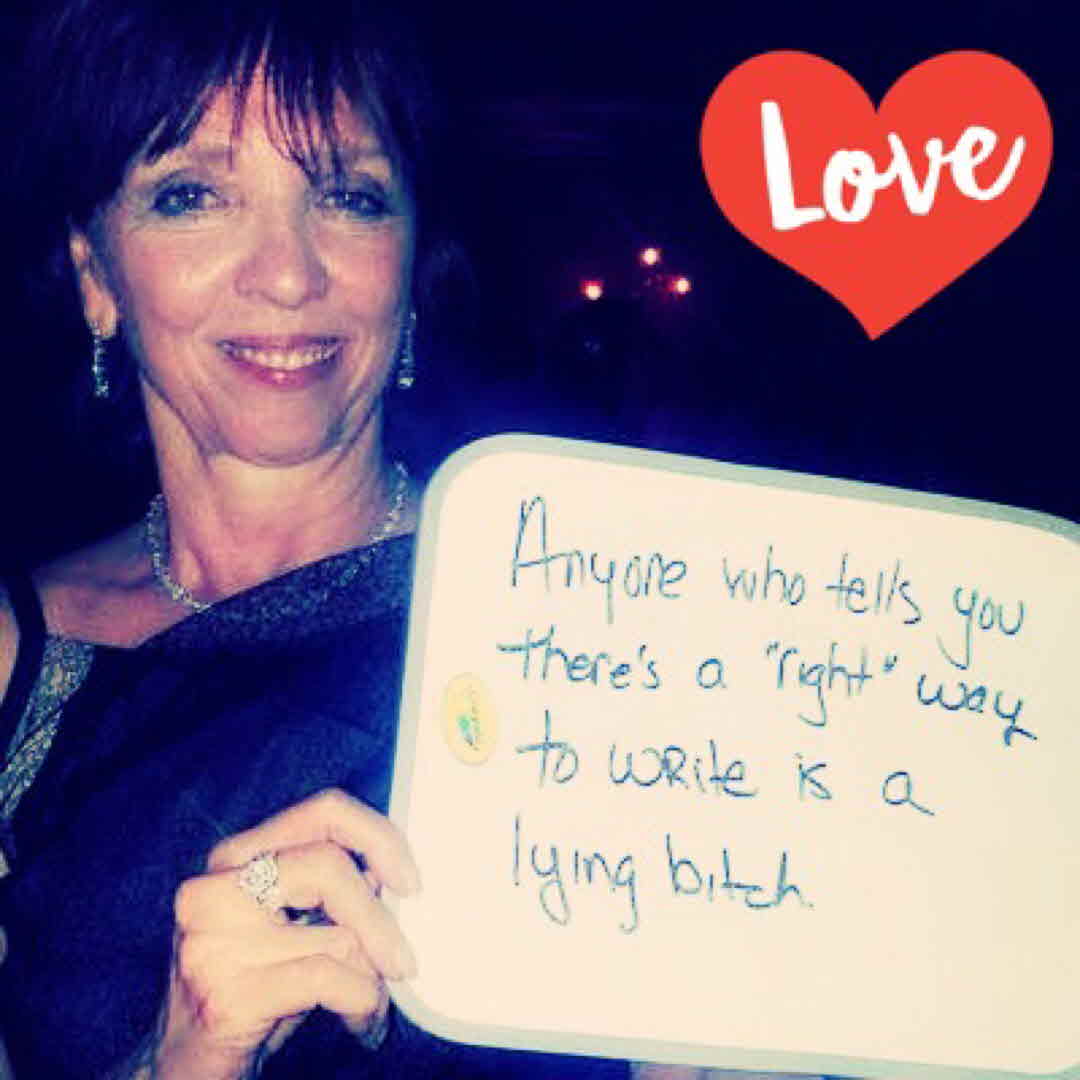 Love
Anyone who tells you
there's a "right" way
to write is a
lying bitch.